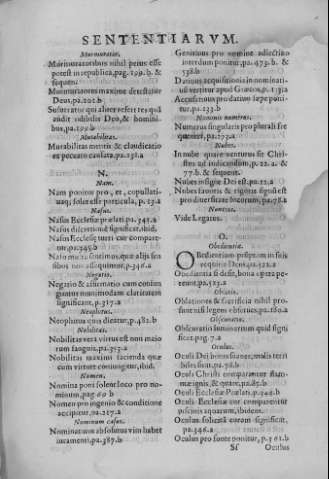 SENTENTIARVM.
Murmuratio.
Murmuratoribus nihil peius esse
potest in republica, pag. 199. b. &
sequen.
Murmuratores maxime detestatur
Deus, pa. 201. b
Susurrator qui aliter refert res quā
audit odibilis Deo, & homini-
bus, pa. 199. b
Mutabilitas.
Mutabilitas mentis & claudicatio
ex peccato causata. pa. 251. a
N.
Nam.
Nam ponitur pro, et, copullati-
uaq; solet esse particula, p. 13. a
Nasus.
Nasus Ecclesiæ prælati pa. 345. a
Nasus discretionē significat, ibid.
Nasus Ecclesię turri cur compare-
tur, pa. 345. b
Naso multa sentimus, quæ alijs sen
sibus non assequimur, p. 346. a
Negatio.
Negatio & affirmatio cum coniun
guntur nonnunquam claritatem
significant, p. 317. a
Neophitus.
Neophitus quis dicatur, p. 482. b
Nobilitas.
Nobilitas vera virtus est non maio
rum sanguis, pa. 353. a
Nobilitas maxima facienda quæ
cum virtute coniungitur, ibid.
Nomen.
Nomina poni solent loco pro no-
minum, pag. 60 b
Nomen pro ingenio & conditione
accipitur, pa. 217. a
Nominum casus.
Nominatiuum absolutus vim habet
iuramenti, pa. 387. b
Genitiuus pro nomine adiectiuo
interdum ponitur, pa. 473. b. &
538. b
Datiuus acquisitionis in nominati-
uū vertitur apud Græcos, p. 131. a
Accusatiuus pro datiuo sæpe poni-
tur, pa. 133. b
Nominis numerus.
Numerus singularis pro plurali fre
quenter, pa. 272. a
Nubes.
In nube quare venturus sit Chri-
stus ad iudicandum, p. 22. a. &
77. b. & sequent.
Nubes insigne Dei est, pa. 22. a
Nubes fauoris & rigoris signū est
pro diuersitate locorum, pa. 78. a
Nuncius.
Vide Legatos.
O.
Obedientia.
OBedientiam perpetuam in suis
requirit Deus, pa. 522. a
Obedientia si desit, bona cætera pe-
reunt. pa. 523. a
Oblatio.
Oblationes & sacrificia nihil pro-
sunt nisi legem obseruēs, pa. 160. a
Obscuratio.
Obscuratio luminarium quid signi
ficat. pag. 7. a
Oculus.
Oculi Dei bonos sianes, malis terri
biles sunt, pa. 78. b
Oculi Christi comparantur flam-
mæ ignis, & quare, pa. 85. b
Oculi Ecclesiæ Prælati, p. 345. b
Oculi Ecclesiæ cur comparentur
piscinis aquarum, ibidem.
Oculus solicitā curam significat
pa. 346. a
Oculus pro fonte ponitur, p. 361. b
Sf Ocultus